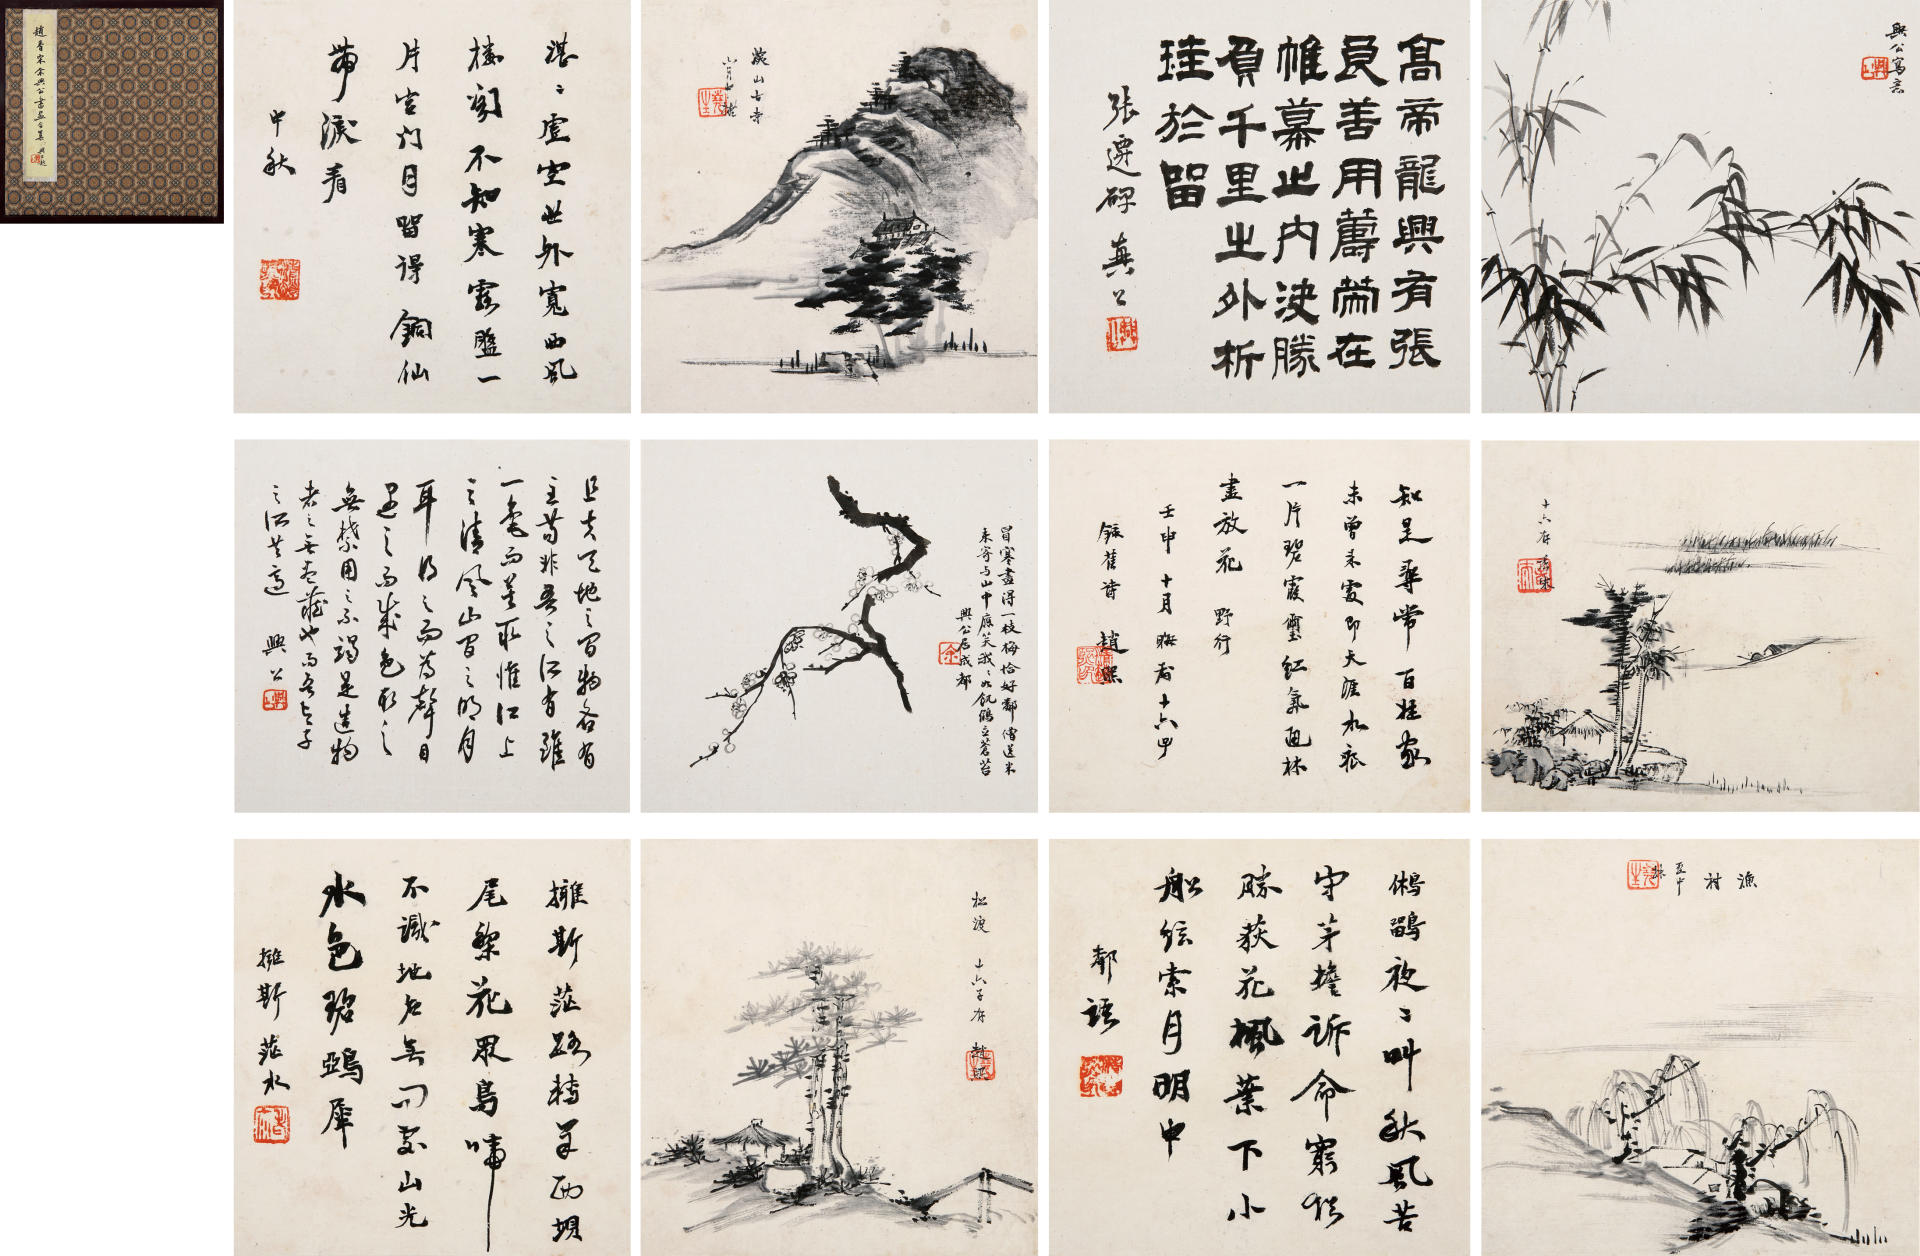 趙香宋余興公書畫合美
湛〻虛空世外寬西風
樓閣不知寒露盤一
片宮門月留得銅仙
帶淚看
中秋
凌山古寺
高帝龍興有張
良善用籌策在
帷幕之內決勝
負千里之外析
珪於留
張遷碑 興公
興公寫意
且夫天地之間物各有
主苟非吾之所有雖
一毫而莫取惟江上
之清風山間之明月
耳得之而為聲目
遇之而成色取之
無禁用之不竭是造物
者之無盡藏也而吾與子
之所共適 興公
冒寒畫得一枝梅恰好鄰僧送米
來寄与山中應笑我〻如飢鶴立蒼苔
興公居成都
知是尋常百姓家
未曾來處即天涯水痕
一片碧霞璽紅氣通林
盡放花 野行
壬申十月晦前十六甲
錄舊詩 趙熙
擁斯茫路轉羊西埧
尾黎花眾鳥啼
不識地名無問處山光
水色碧鷄犀
擁斯茫水
松渡
趙熙
鵂鶹夜〻叫秋風苦
守茅檐訴命窮從
勝荻花楓葉下小
船絃索月明中
鄰語
漁村